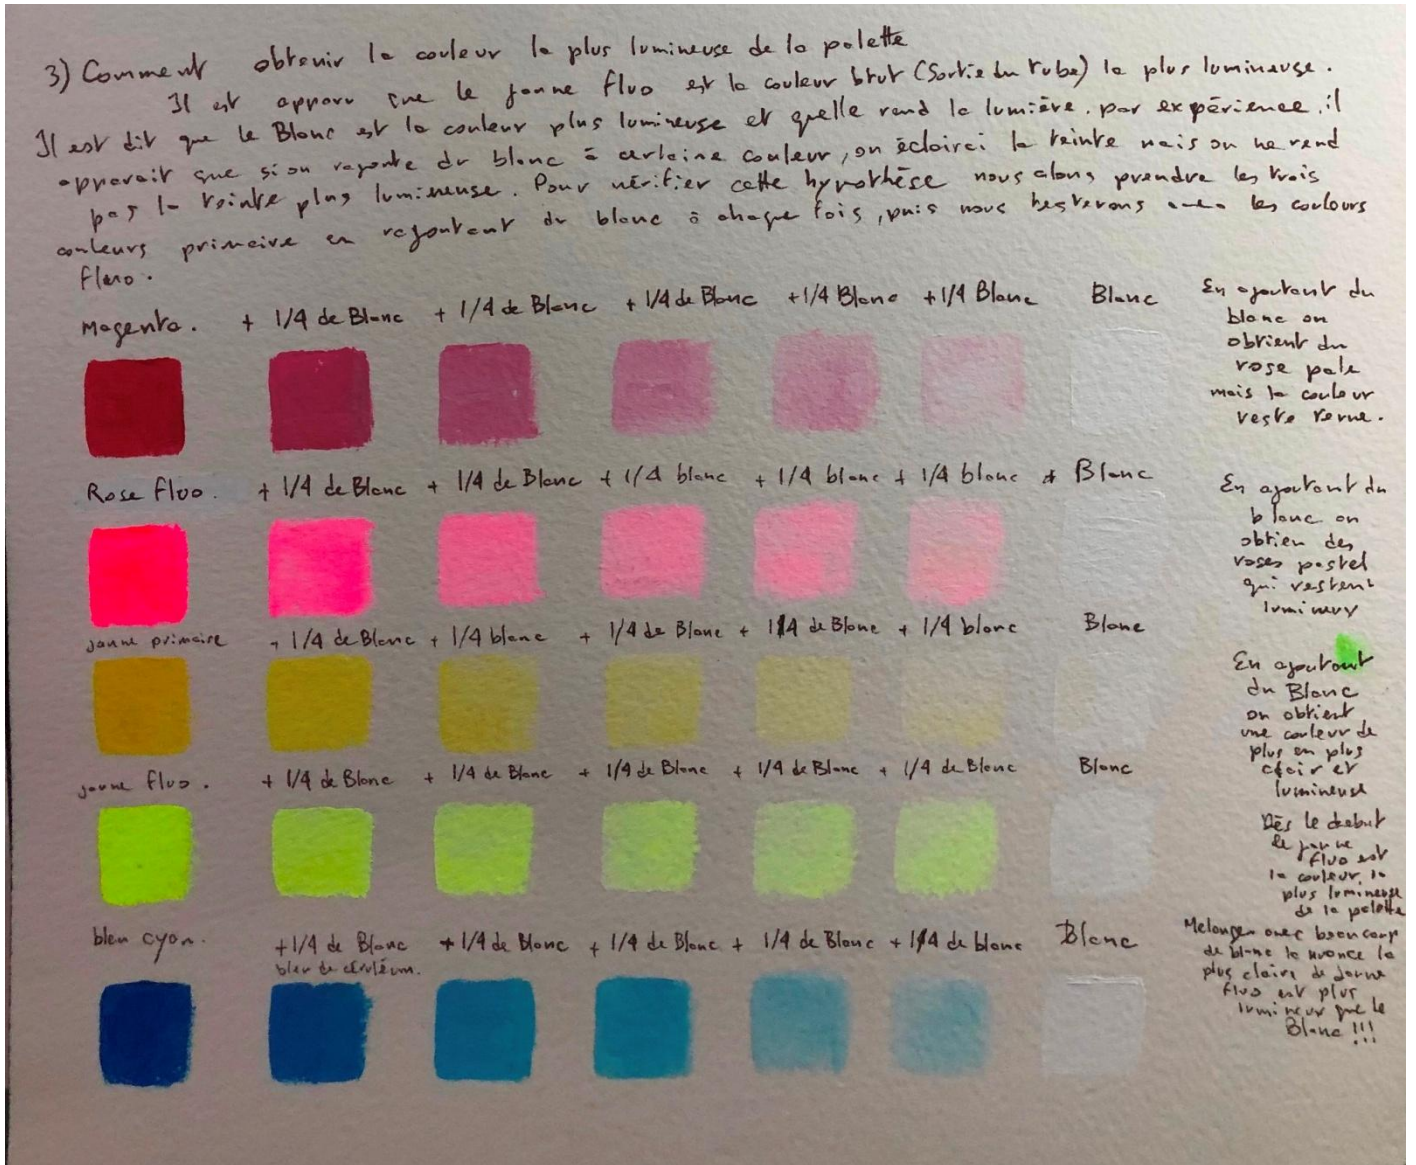 3) Comment obtenir la couleur la plus lumineuse de la palette
Il est apparu que le jaune fluo est la couleur brut (Sortie du tube) la plus lumineuse.
Il est dit que le Blanc est la couleur plus lumineuse et quelle rend la lumière. par expérience, il
apparait que si on rajoute du blanc à certaine couleur, on éclairci la teinte mais on ne rend
pas la teinte plus lumineuse. Pour vérifier cette hypothèse nous alons prendre les trois
couleurs primaire en rajoutant du blanc à chaque fois, puis nous testerons les couleurs
fluo.
Magenta. + 1/4 de Blanc + 1/4 de Blanc + 1/4 de Blanc +1/4 Blanc +1/4 Blanc Blanc
En ajoutant du
blanc on
obtient du
rose pale
mais la couleur
reste terne.
Rose Fluo. + 1/4 de Blanc + 1/4 de Blanc + 1/4 blanc + 1/4 blanc + 1/4 blanc + Blanc
En ajoutant du
blanc on
obtien des
roses pastel
qui restent
lumineux
jaune primaire + 1/4 de Blanc + 1/4 blanc + 1/4 de Blanc + 1/4 de Blanc + 1/4 blanc Blanc
En ajoutant
du Blanc
on obtient
une couleur de
plus en plus
clair et
lumineuse
jaune fluo. + 1/4 de Blanc + 1/4 de Blanc + 1/4 de Blanc + 1/4 de Blanc + 1/4 de Blanc Blanc
Dès le debut
le jaune
fluo est
la couleur la
plus lumineuse
de la palette
bleu cyan. +1/4 de Blanc +1/4 de Blanc + 1/4 de Blanc + 1/4 de Blanc +1/4 de blanc Blanc
bleu de céruléum.
Melanger avec beaucoup
de blanc la nuance la
plus claire de jaune
fluo est plus
lumineux que le
Blanc !!!